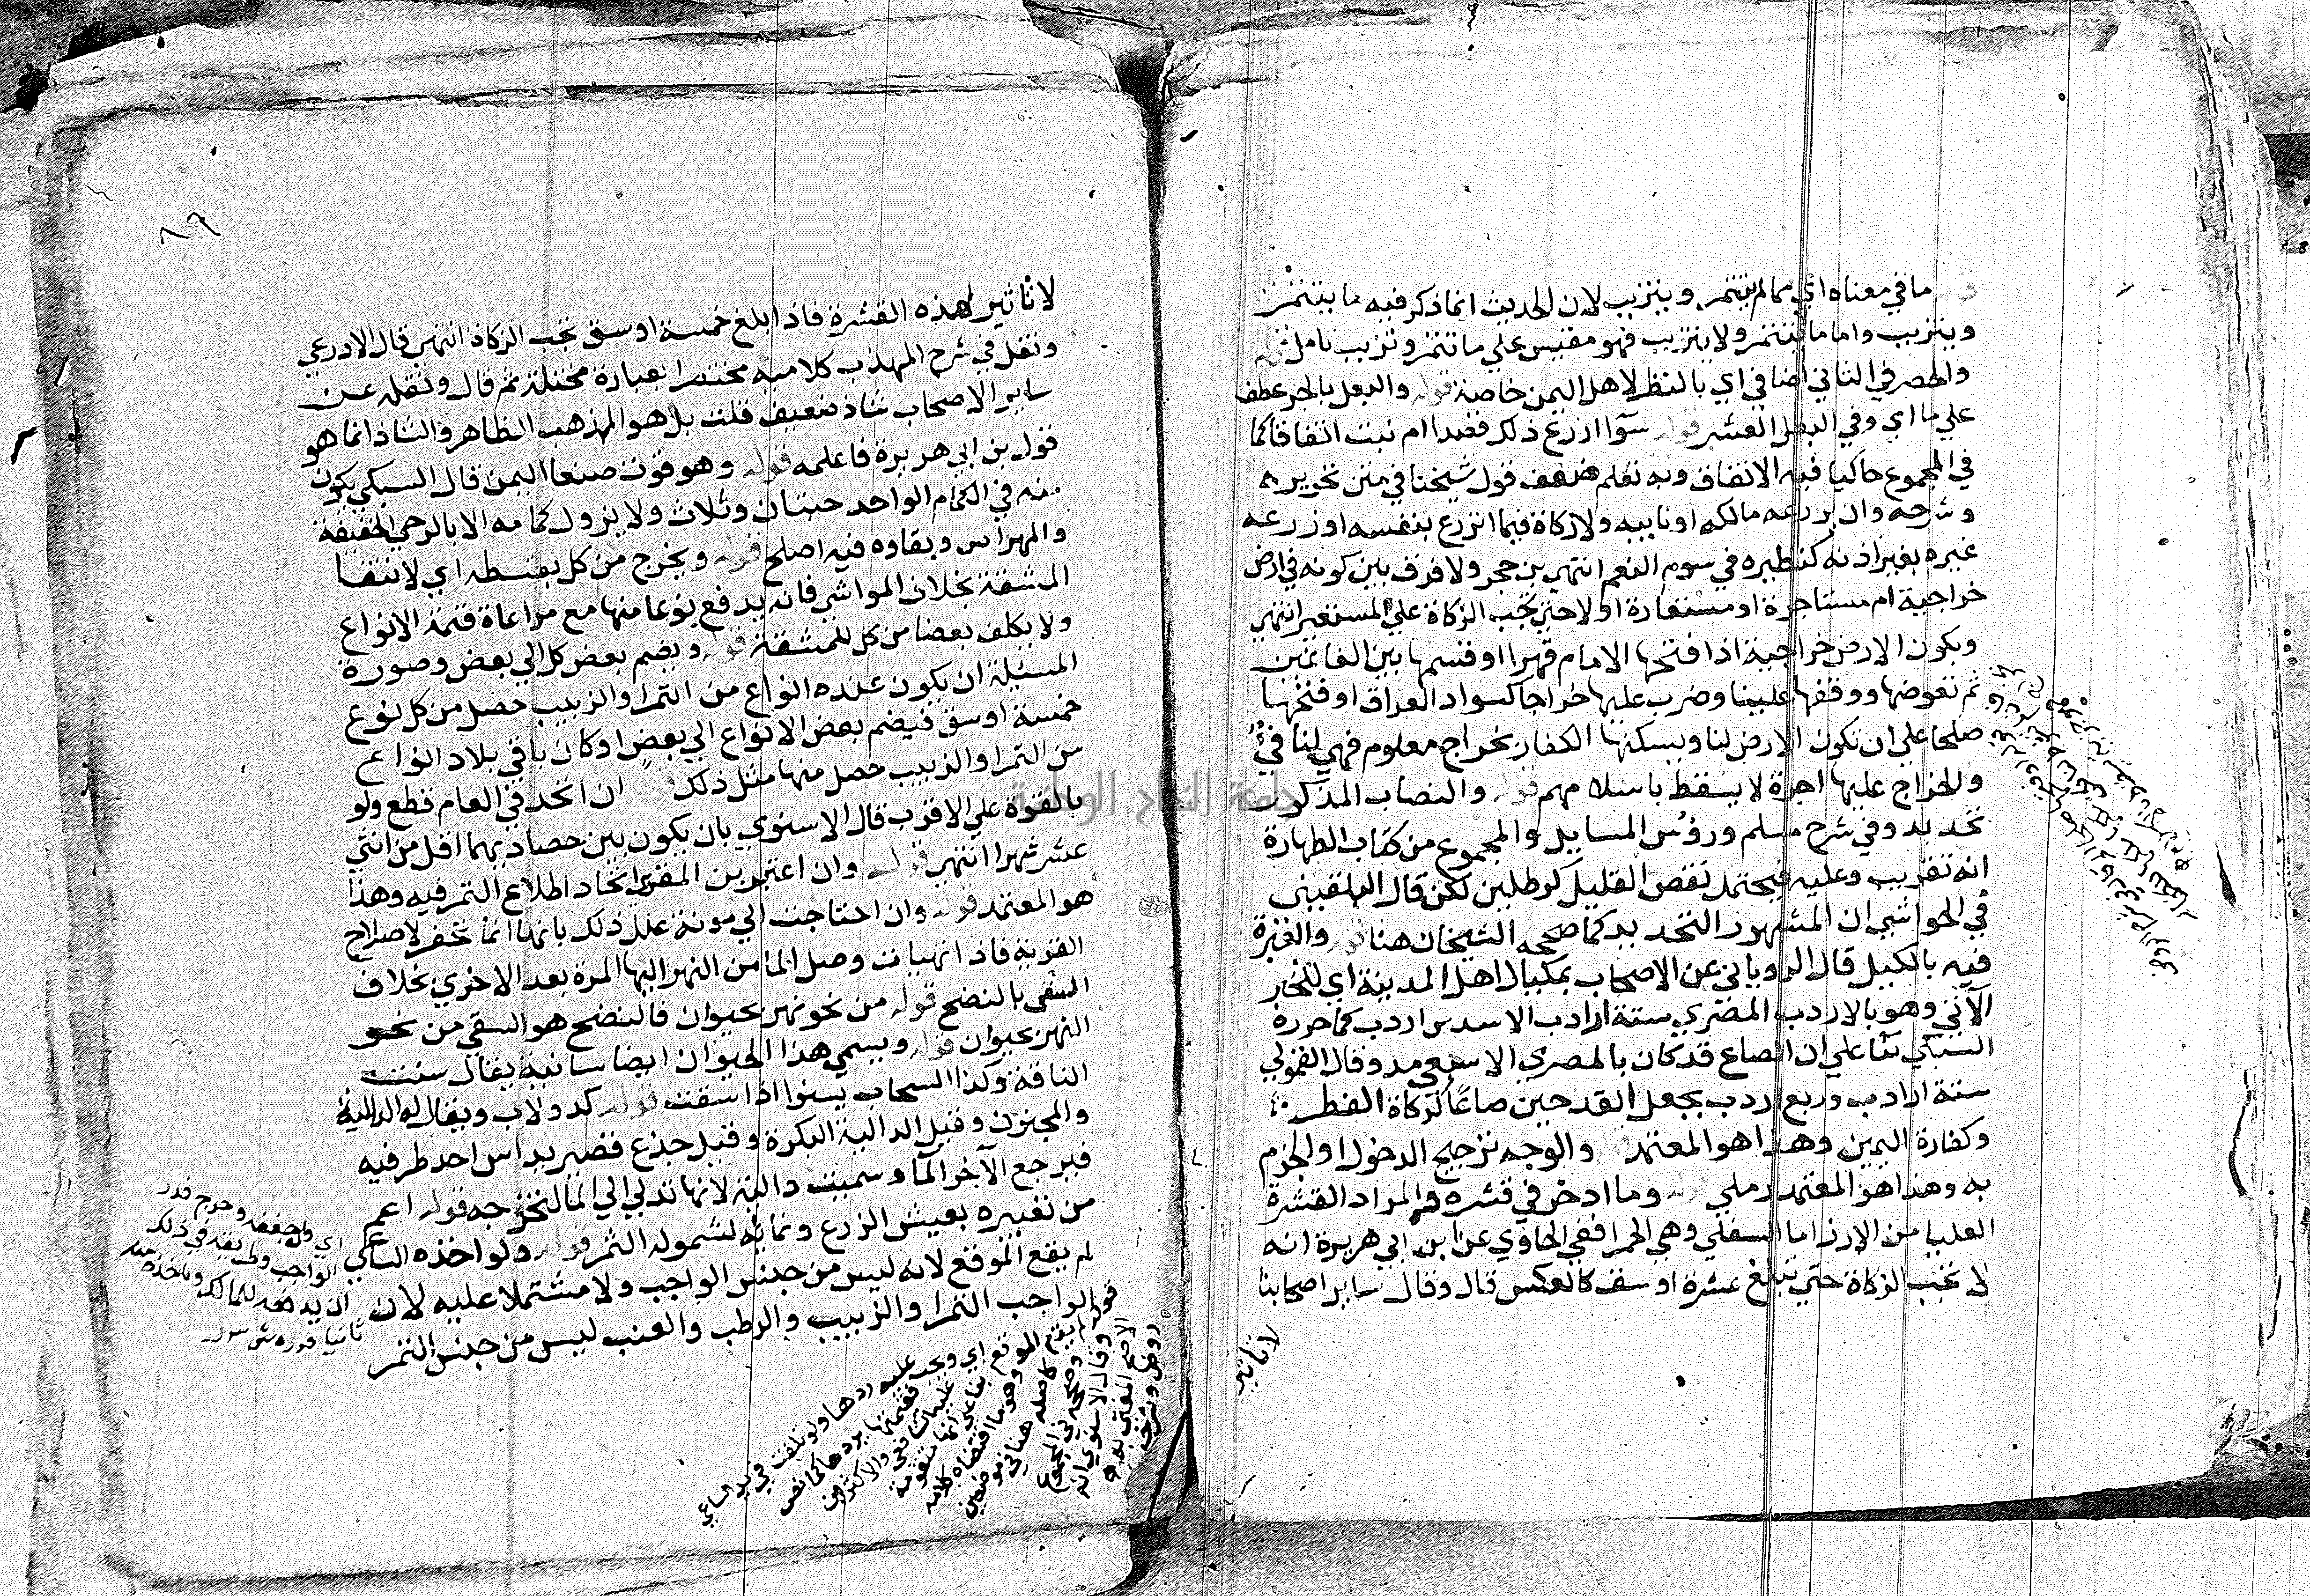 ما في معناه اي مما لم يتتمر ويتزبب لان الحديث انما ذكر فيه ما يتتمر
ويتزبب واما ما لا يتتمر ولا يتزبب فهو مقيس علي ما تتمر وتزبب تامل قوله
والحصر في الثاني اضافي اي بالنظر لاهل اليمن خاصة قوله والبعل بالجر عطف
علي ما اي وفي البعل العشر قوله سوآ ازرع ذلك قصدا ام نبت اتفاقا كما
في المجموع حاكيا فيه الاتفاق وبه تعلم ضعف قول شيخنا في متن تحريره
وشرحه وان يزرعه مالكه او نايبه ولا زكاة فيما انزرع بنفسه او زرعه
غيره بغير اذنه كنظيره في سوم النعم انتهي بن حجر ولا فرق بين كونه في ارض
خراجية ام مستاجرة او مستعارة او لا حتي تجب الزكاة علي المستعير انتهي
ويكون الارض خراجية اذا فتحها الامام قهرا او قسمها بين الغانمين
ثم تعوضها ووقفها علينا وضرب عليها خراجا كسواد العراق او فتحها
صلحا علي ان تكون الارض لنا ويسكنها الكفار بخراج معلوم فهي لنا فيء
والخراج عليها اجرة لا يسقط باسلامهم قوله والنصاب المذكور
تحديد وفي شرح مسلم ورؤس المسايل والمجموع من كتاب الطهارة
انه تقريب وعليه فيحتمل نقص القليل كرطلين لكن قال البلقيني
في الحواشي ان المشهور التحديد كما صححه الشيخان هنا قوله والعبرة
فيه بالكيل قال الروياني عن الاصحاب بمكيال اهل المدينة اي للخبر
الآتي وهو بالاردب المصري ستة ارادب الا سدس اردب كما حرره
السبكي بنا علي ان الصاع قدحان بالمصري الا سبعي مد وقال القمولي
ستة ارادب وربع اردب بجعل القدحين صاعا لزكاة الفطر
وكفارة اليمين وهذا هو المعتمد والوجه ترجيح الدخول او الجزم
به وهذا هو المعتمد رملي قوله وما ادخر في قشره والمراد القشرة
العليا من الارز اما السفلي وهي الحمرا ففي الحاوي عن ابن ابي هريرة انه
لا تجب الزكاة حتي تبلغ عشرة اوسق كالعكس قال وقال ساير اصحابنا
لا تاثير
٨٩
لا تاثير لهذه القشرة فاذا بلغ خمسة اوسق تجب الزكاة انتهي قال الاذرعي
ونقل في شرح المهذب كلاميه مختصرا بعبارة مختلة ثم قال ونقله عن
ساير الاصحاب شاذ ضعيف قلت بل هو المذهب الظاهر والشاذ انما هو
قول بن ابي هريرة فاعلمه قوله وهو قوت صنعا اليمن قال السبكي يكون
منه في الكمام الواحد حبتان وثلاث ولا يزول كمامه الا بالرحي الخفيفة
والمهراس وبقاوه فيه اصلح قوله ويخرج من كل بقسطه اي لانتفا
المشقة بخلاف المواشي فانه يدفع نوعا منها مع مراعاة قيمة الانواع
ولا يكلف بعضا من كل للمشقة قوله ويضم بعض كل الي بعض وصورة
المسئلة ان يكون عنده انواع من التمر او الزبيب حصل من كل نوع
خمسة اوسق فيضم بعض الانواع الي بعض او كان باقي بلاد انواع
من التمر او الزبيب حصل منها مثل ذلك قوله ان اتحد في العام قطع ولو
بالقوة علي الاقرب قال الاسنوي بان يكون بين حصاديهما اقل من اثني
عشر شهرا انتهي قوله وان اعتبر بن المقري اتحاد اطلاع التمر فيه وهذا
هو المعتمد قوله وان احتاجت الي مونة علل ذلك بانها انما تحفر لاصلاح
القرية فاذا تهيات وصل الما من النهر اليها المرة بعد الاخري بخلاف
السقي بالنضح قوله من نحو نهر بحيوان فالنضح هو السقي من نحو
النهر بحيوان قوله ويسمي هذا الحيوان ايضا سانية يقال سنت
الناقة وكذا السحاب يسنوا اذا سقت قوله كدولاب ويقال له الدالية
والمجنون وقيل الدالية البكرة وقيل جذع قصير يداس احد طرفيه
فيرجع الآخر المآ وسميت دالية لانها تدلي الي الما لتخرجه قوله اعم
من تعبيره بعيش الزرع ونمائه لشموله الثمر قوله ولو اخذه الساعي
لم يقع الموقع لانه ليس من جنس الواجب ولا مشتملا عليه لان
الواجب التمر او الزبيب والرطب والعنب ليس من جنس التمر
اي ولو جففه وخرج قدر
الواجب وطريقه في ذلك
ان يدفعه للمالك وياخذه منه
ثانيا
قوله لم يقع الموقع اي ويجب عليه ردها ولو تلفت في يد الساعي